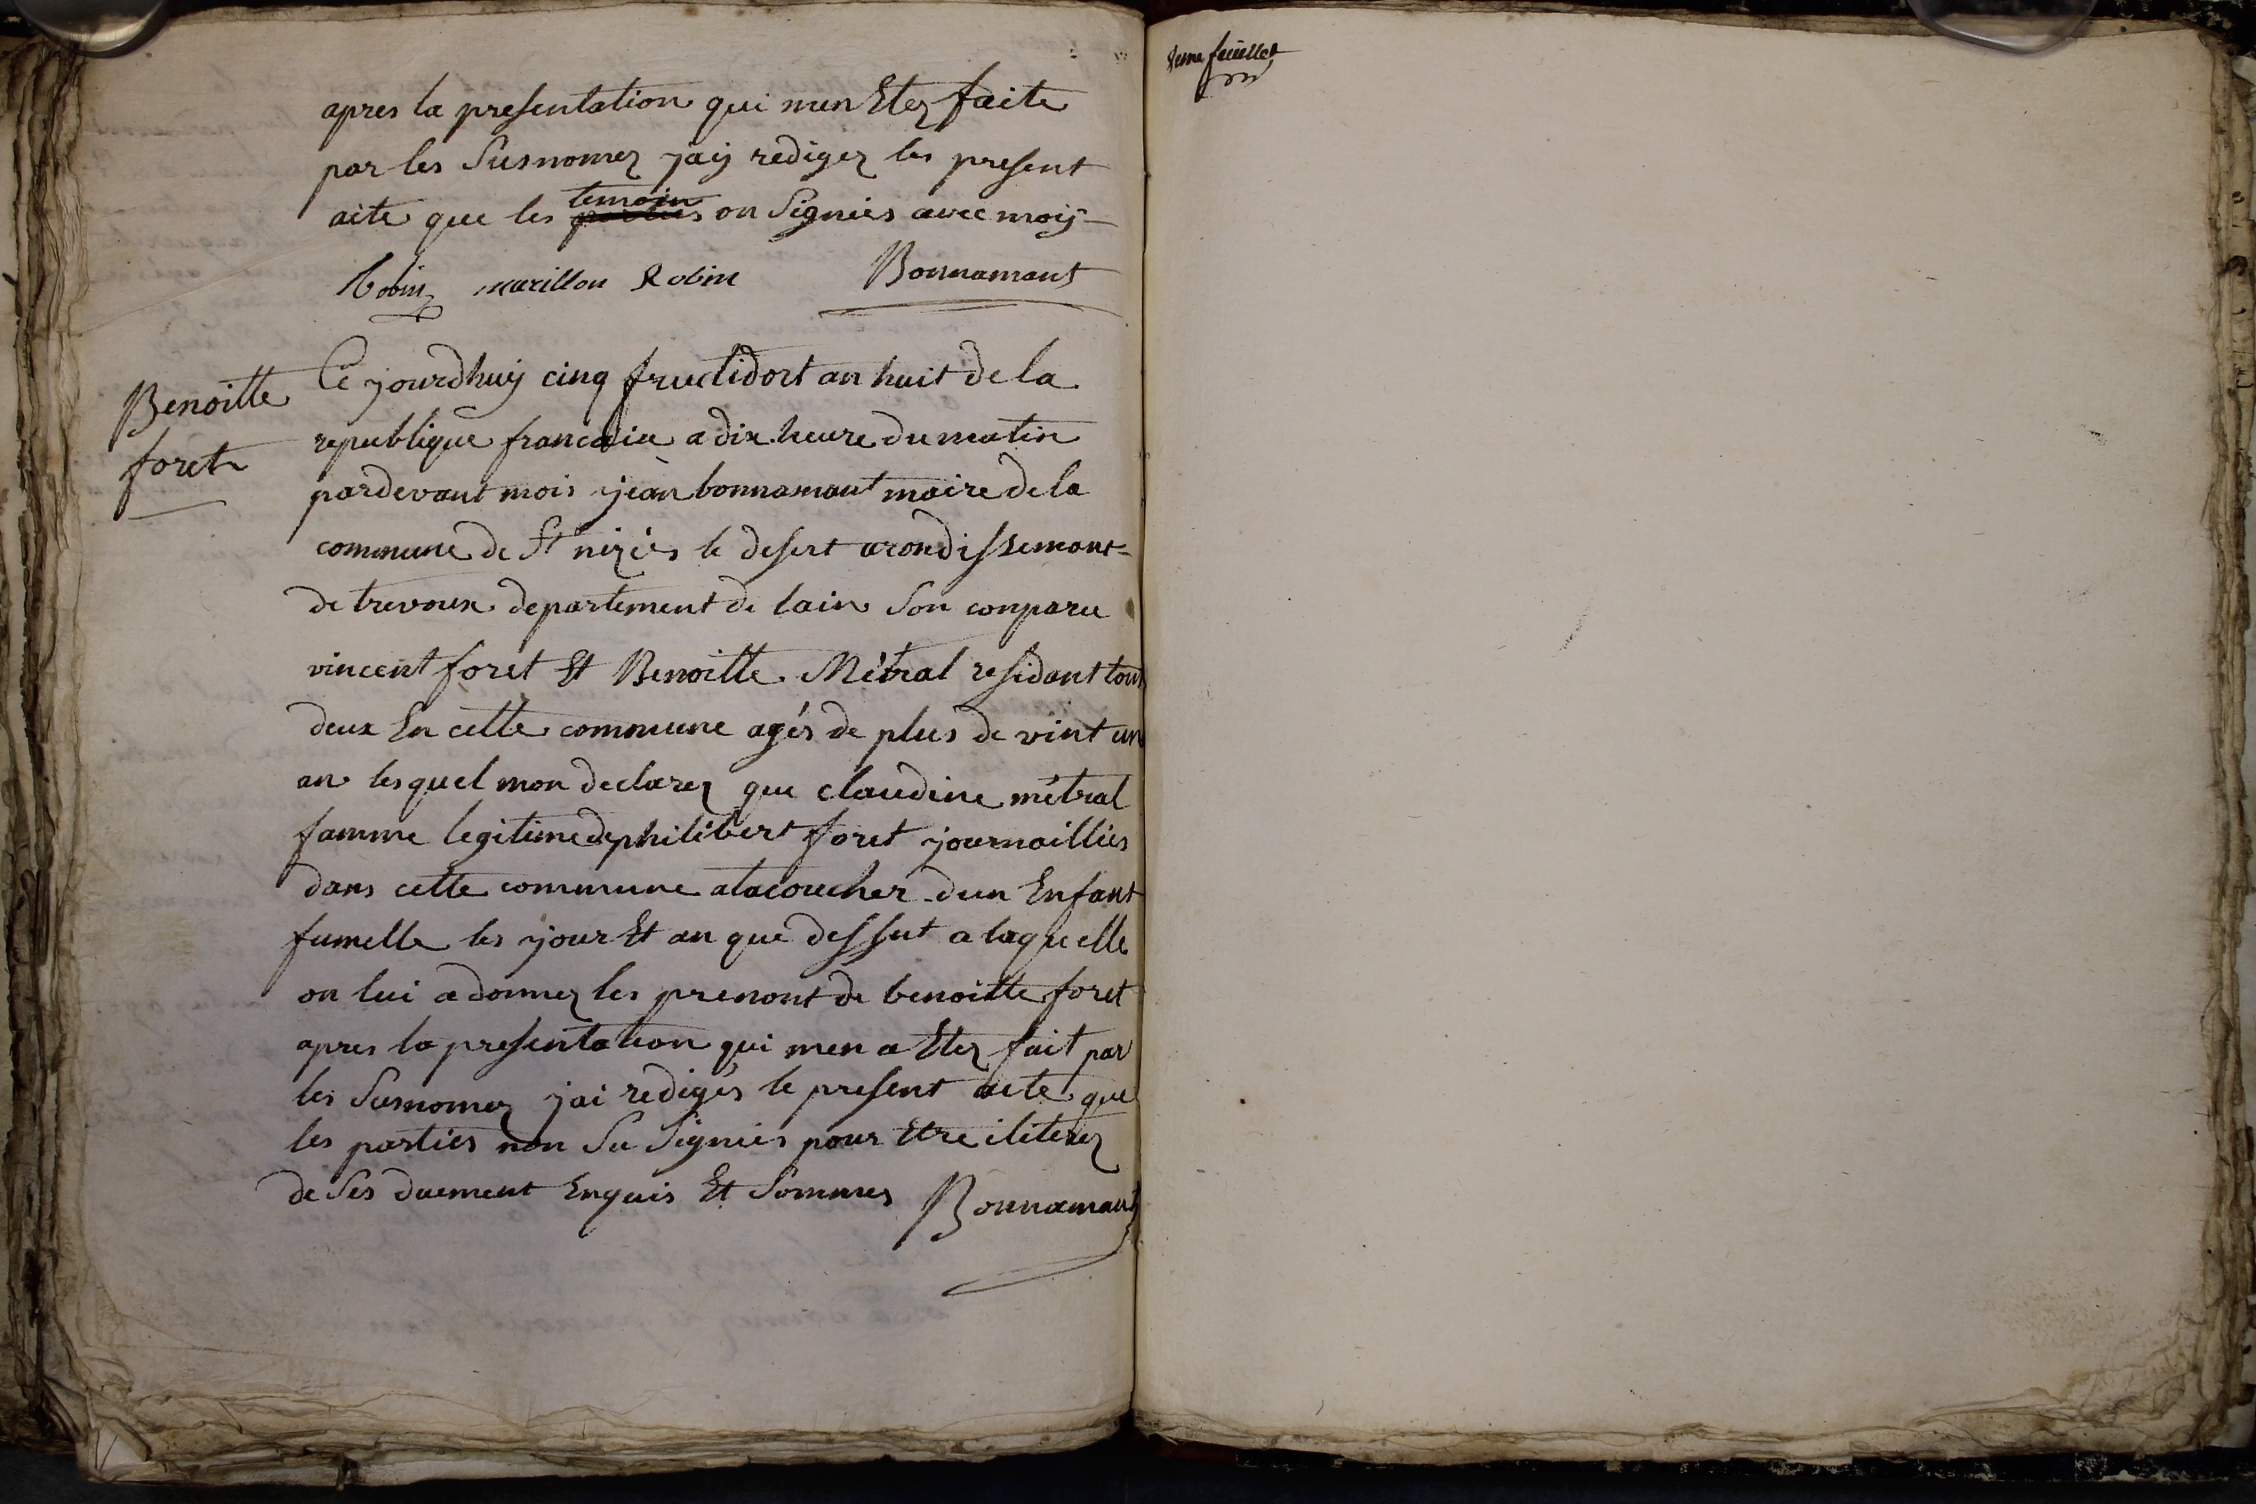 apres la presentation qui men Etez faite
par les Susnomez jaij redigez les present
acte que les temoin on Signiés avec moij
Robin marillon Robin Bonnamant
Ce jourdhuij cinq fructidort an huit de la
Benoitte
foret
republique francaiee a dix heure du matin
pardevant mois jean bonnamant maire de la
commune de St niziés le desert arondissemant
de trevoux departement de lain Son conparu
vincent foret Et Benoitte Métral residant tous
deux En cette commune agés de plus de vint un
an lesquel mon declarez que claudine métral
famme legitime de philibert foret journaillies
dans cette commune atacoucher dun Enfant
fumelle les jour Et an que dessut a laquelle
on lui a donnez les prenont de benoitte foret
apres la presentation qui men a Etez fait par
les Susnomez jai redigés le present acte que
les parties non Su Signiés pour Etre iliterez
de Ses duement Enquis Et Sommes Bonnamant
feuillet